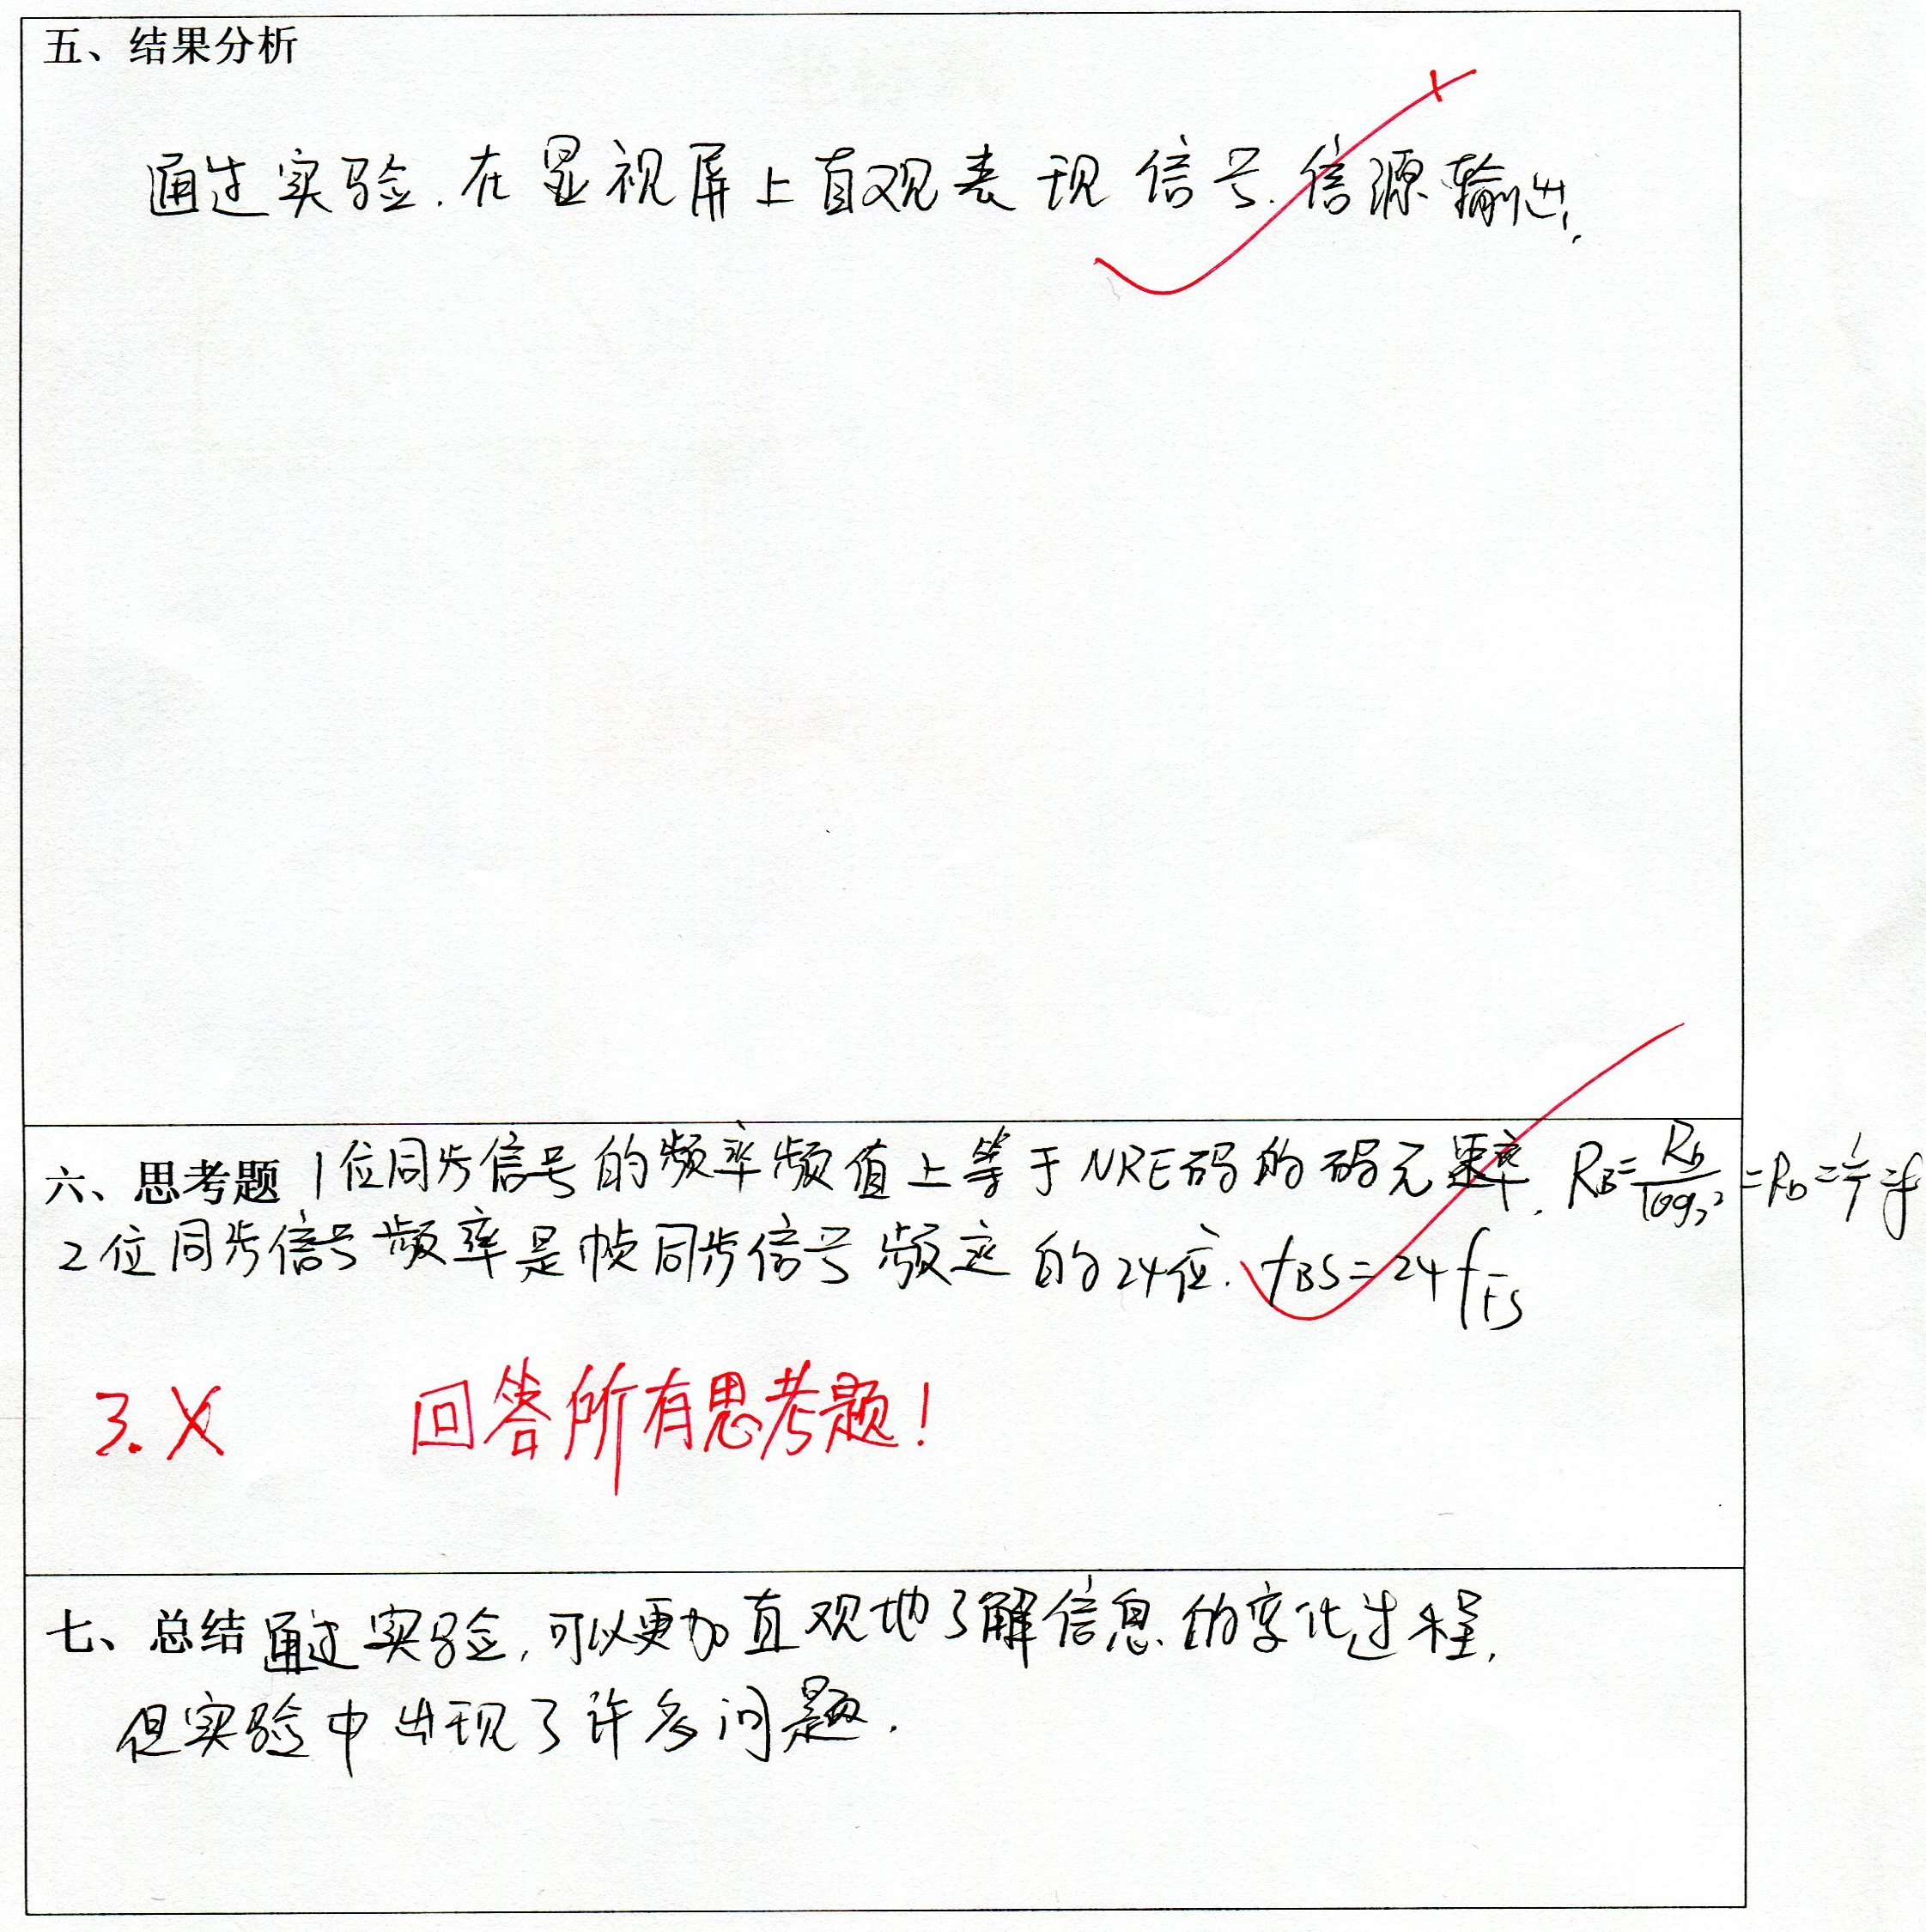 五、结果分析
通过实验.在显视屏上直观表现信号.信源输出.
六、思考题 1位同步信号的频率频值上等于NRE码的码元速率. RB=Rb/log₂2=Rb=1/T=f
2位同步信号频率是帧同步信号频率的24位. fBS=24fFS
3.X 回答所有思考题!
七、总结 通过实验,可以更加直观地了解信息的变化过程.
但实验中出现了许多问题.